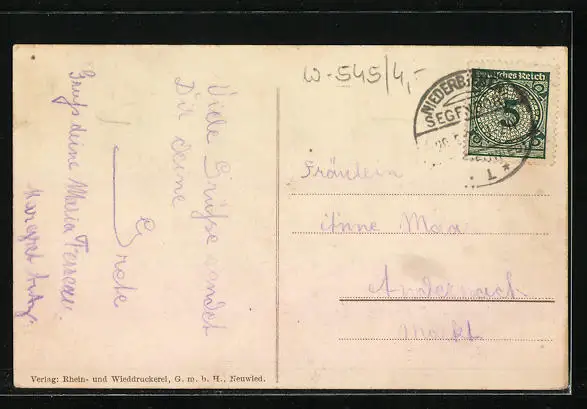 W-545/4,-
Deutsches Reich
5
NIEDERB
SEGF
Viele Grüße sendet
Dir deine
Grete
Gruß deine Maria
Margret
Fräulein
Anne Maa
Andernach
Markt
Verlag: Rhein- und Wieddruckerei, G. m. b. H., Neuwied.